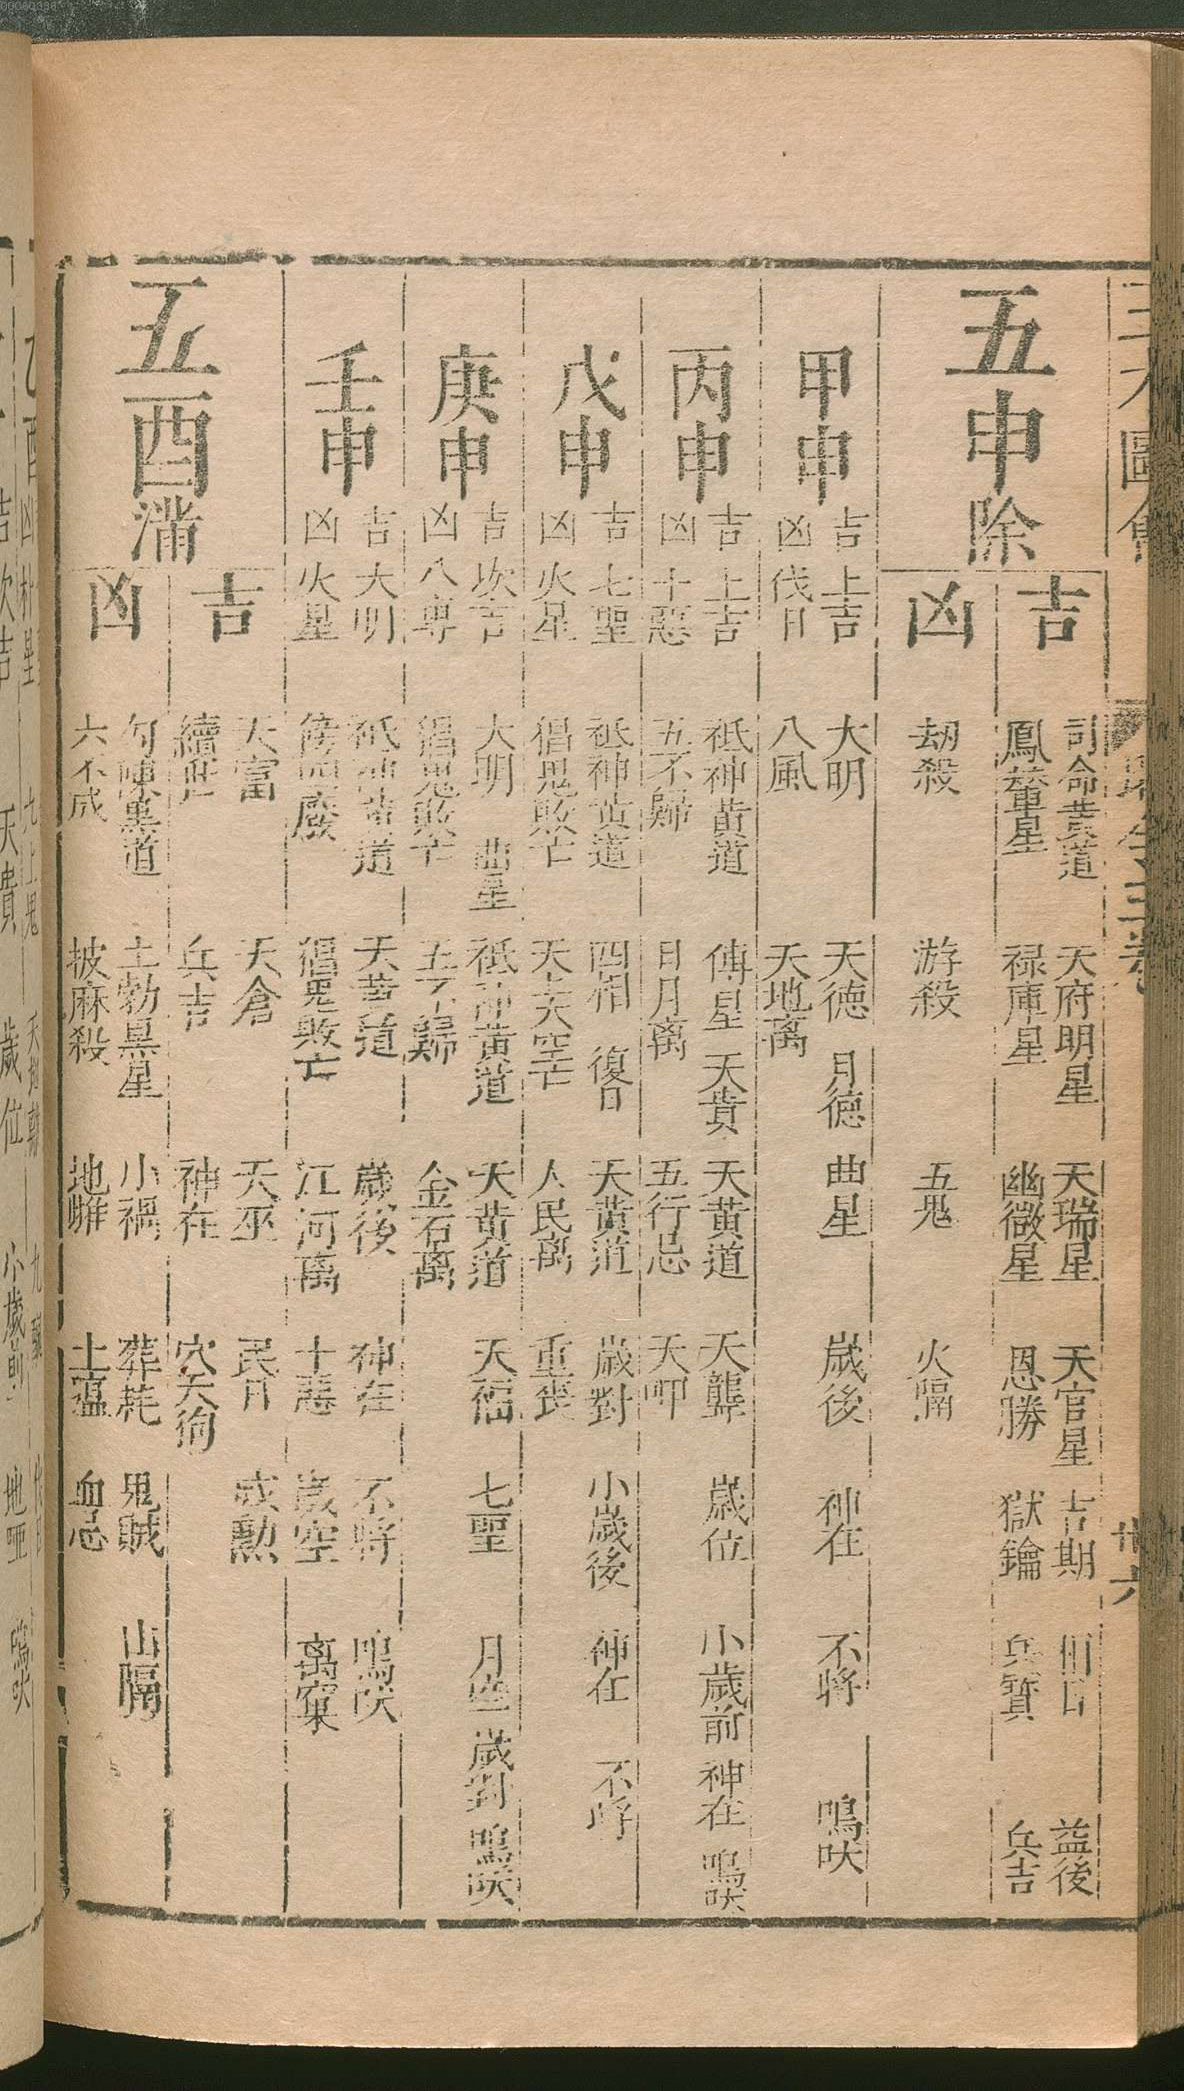 三才圖會
五申除
吉
司命黃道 天府明星 天瑞星 天官星 吉期 益後
鳳輦星 祿庫星 幽微星 恩勝 獄鑰 兵寶 兵吉
凶
劫殺 游殺 五鬼 火隔
甲申
吉 上吉 大明 天德 月德 曲星 歲後 神在 不將 鳴吠
凶 伐日 八風 天地离
丙申
吉 上吉 祗神黃道 傳星 天貴 天黃道 天聾 歲位 小歲前 神在 鳴吠
凶 十惡 五不歸 日月离 五行忌
戊申
吉 七聖 祗神黃道 四相 復日 天黃道 歲對 小歲後 神在 不將
凶 火星 倡鬼敗亡 天上大空亡 人民离 重喪
庚申
吉 次吉 大明 曲星 祗神黃道 天黃道 天福 七聖 歲對 鳴吠
凶 八專 倡鬼敗亡 五不歸 金石离
壬申
吉 大明 祗神黃道 天黃道 歲後 神在 不將 鳴吠
凶 火星 倡鬼敗亡 江河离 十惡 歲空 离窠
五酉滿
吉
天富 天倉 天巫 民日
續世 兵吉 神在 穴天狗
凶
勾陳黑道 土勃黑星 小禍 葬耗 鬼賊 山隔
六不成 披麻殺 土瘟 血忌